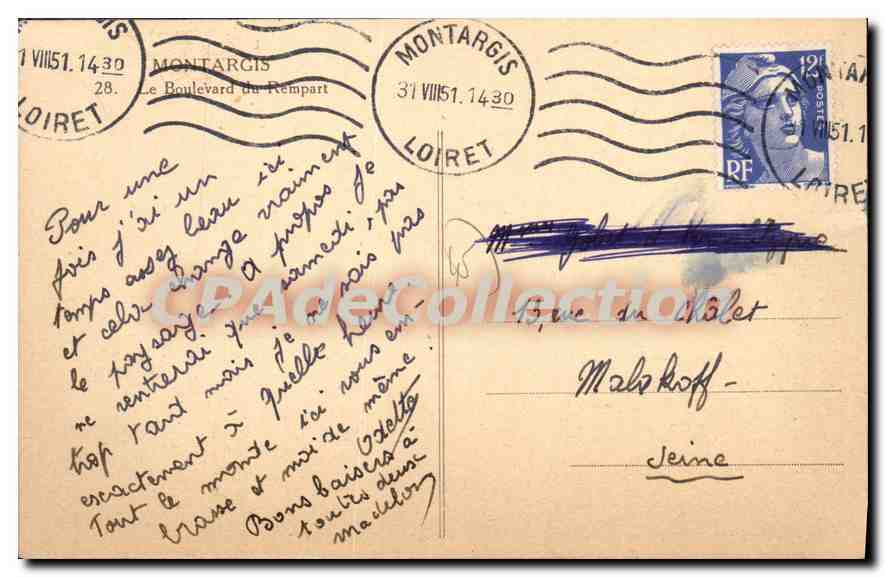 MONTARGIS
28. Le Boulevard du Rempart
MONTARGIS
31 VIII51. 1430
LOIRET
12F
POSTES
RF
Pour une
fois j'ai un
temps assez beau ici
et cela change vraiment
le paysage. A propos je
ne rentrerai que samedi, pas
trop tard mais je ne sais pas
exactement à quelle heure.
Tout le monde ici vous em-
brasse et moi de même.
Odette
Bons baisers à
toutes deux
Madelon
13, rue du Châlet
Malakoff-
Seine
CPAdeCollection.com